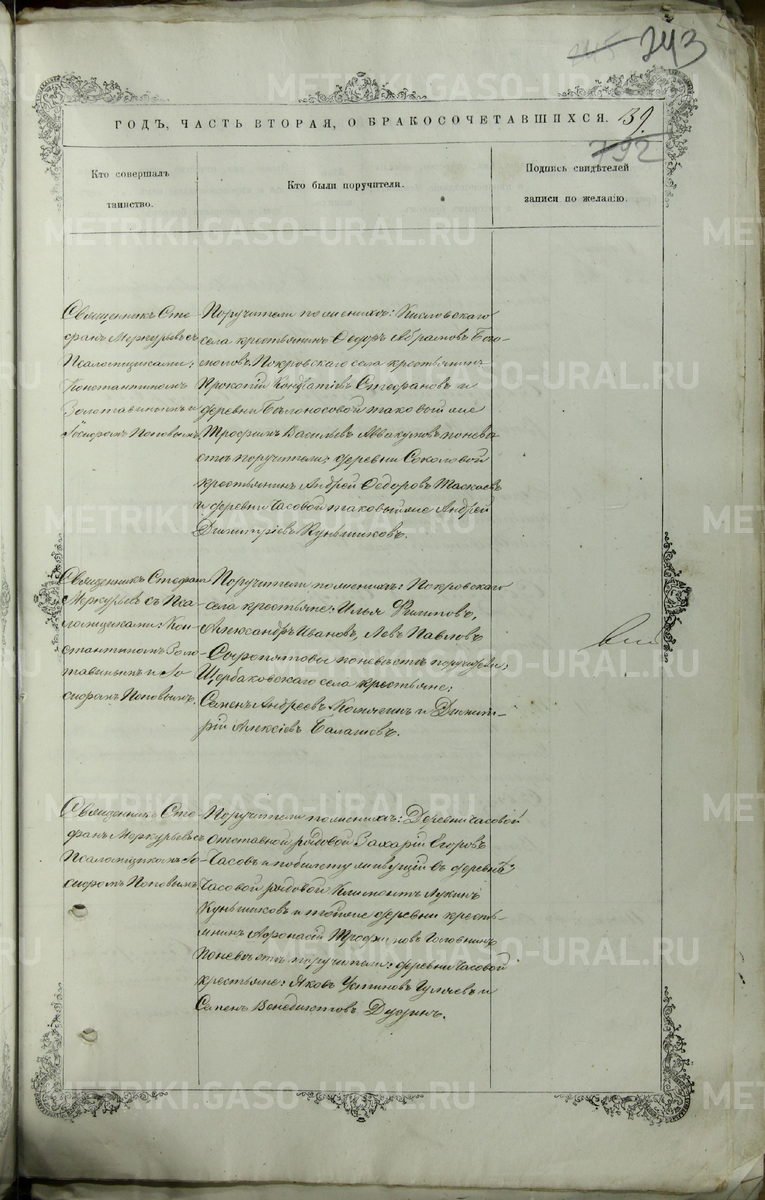 243
ГОДЪ, ЧАСТЬ ВТОРАЯ, О БРАКОСОЧЕТАВШИХСЯ.
39
792
Кто совершалъ
таинство.
Кто были поручители.
Подпись свидѣтелей
записи по желанію.
Священникъ Сте-
фанъ Меркурьевъ съ
Псаломщиками:
Константиномъ
Золотавинымъ и
Іосифомъ Поповымъ.
Поручители по женихѣ: Кисловскаго
села крестьянинъ Ѳедоръ Абрамовъ Бого-
моловъ, Покровскаго села крестьянинъ
Прокопій Стефановъ и
деревни Бѣлоносовой таковой же
Трофимъ Васильевъ Аввакумовъ по невѣ-
стѣ поручители: деревни Соколовой
крестьянинъ Андрей Ѳедоровъ Таскаевъ
и деревни Часовой таковый же Андрей
Димитріевъ Куньщиковъ.
Священникъ Стефанъ
Меркурьевъ съ Пса-
ломщиками: Кон-
стантиномъ Золо-
тавинымъ и Іо-
сифомъ Поповымъ.
Поручители по женихѣ: Покровскаго
села крестьяне: Илья Филиповъ,
Александръ Ивановъ, Левъ Павловъ
Сыропятовы по невѣстѣ поручители:
Щербаковскаго села крестьяне:
Семенъ Андреевъ и Димит-
рій Алексіевъ Балашовъ.
Священникъ Сте-
фанъ Меркурьевъ съ
Псаломщикомъ Іо-
сифомъ Поповымъ.
Поручители по женихѣ: Деревни Часовой
отставной рядовой Захарій Егоровъ
Часовъ и по билету живущій въ деревнѣ
Часовой рядовой Климонтъ Лукинъ
Куньщиковъ и той же деревни кресть-
янинъ Афонасій Трофимовъ Головинъ
По невѣстѣ поручители: деревни Часовой
крестьяне: Яковъ Устиновъ Гуляевъ и
Семенъ Венедиктовъ Дудинъ.
METRIKI.GASO-URAL.RU